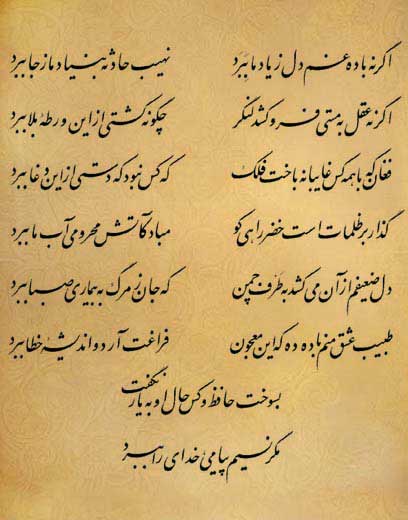 اگر نه باده غم دل ز یاد ما ببرد نهیب حادثه بنیاد ما ز جا ببرد
اگر نه عقل به مستی فرو کشد لنگر چگونه کشتی از این ورطه بلا ببرد
فغان که با همه کس غایبانه باخت فلک که کس نبود که دستی از این دغا ببرد
گذار بر ظلمات است خضر راهی کو مباد کآتش محرومی آب ما ببرد
دل ضعیفم از آن می کشد به طرف چمن که جان ز مرگ به بیماری صبا ببرد
طبیب عشق منم باده ده که این معجون فراغت آرد و اندیشه خطا ببرد
بسوخت حافظ و کس حال او به یار نگفت
مگر نسیم پیامی خدای را ببرد